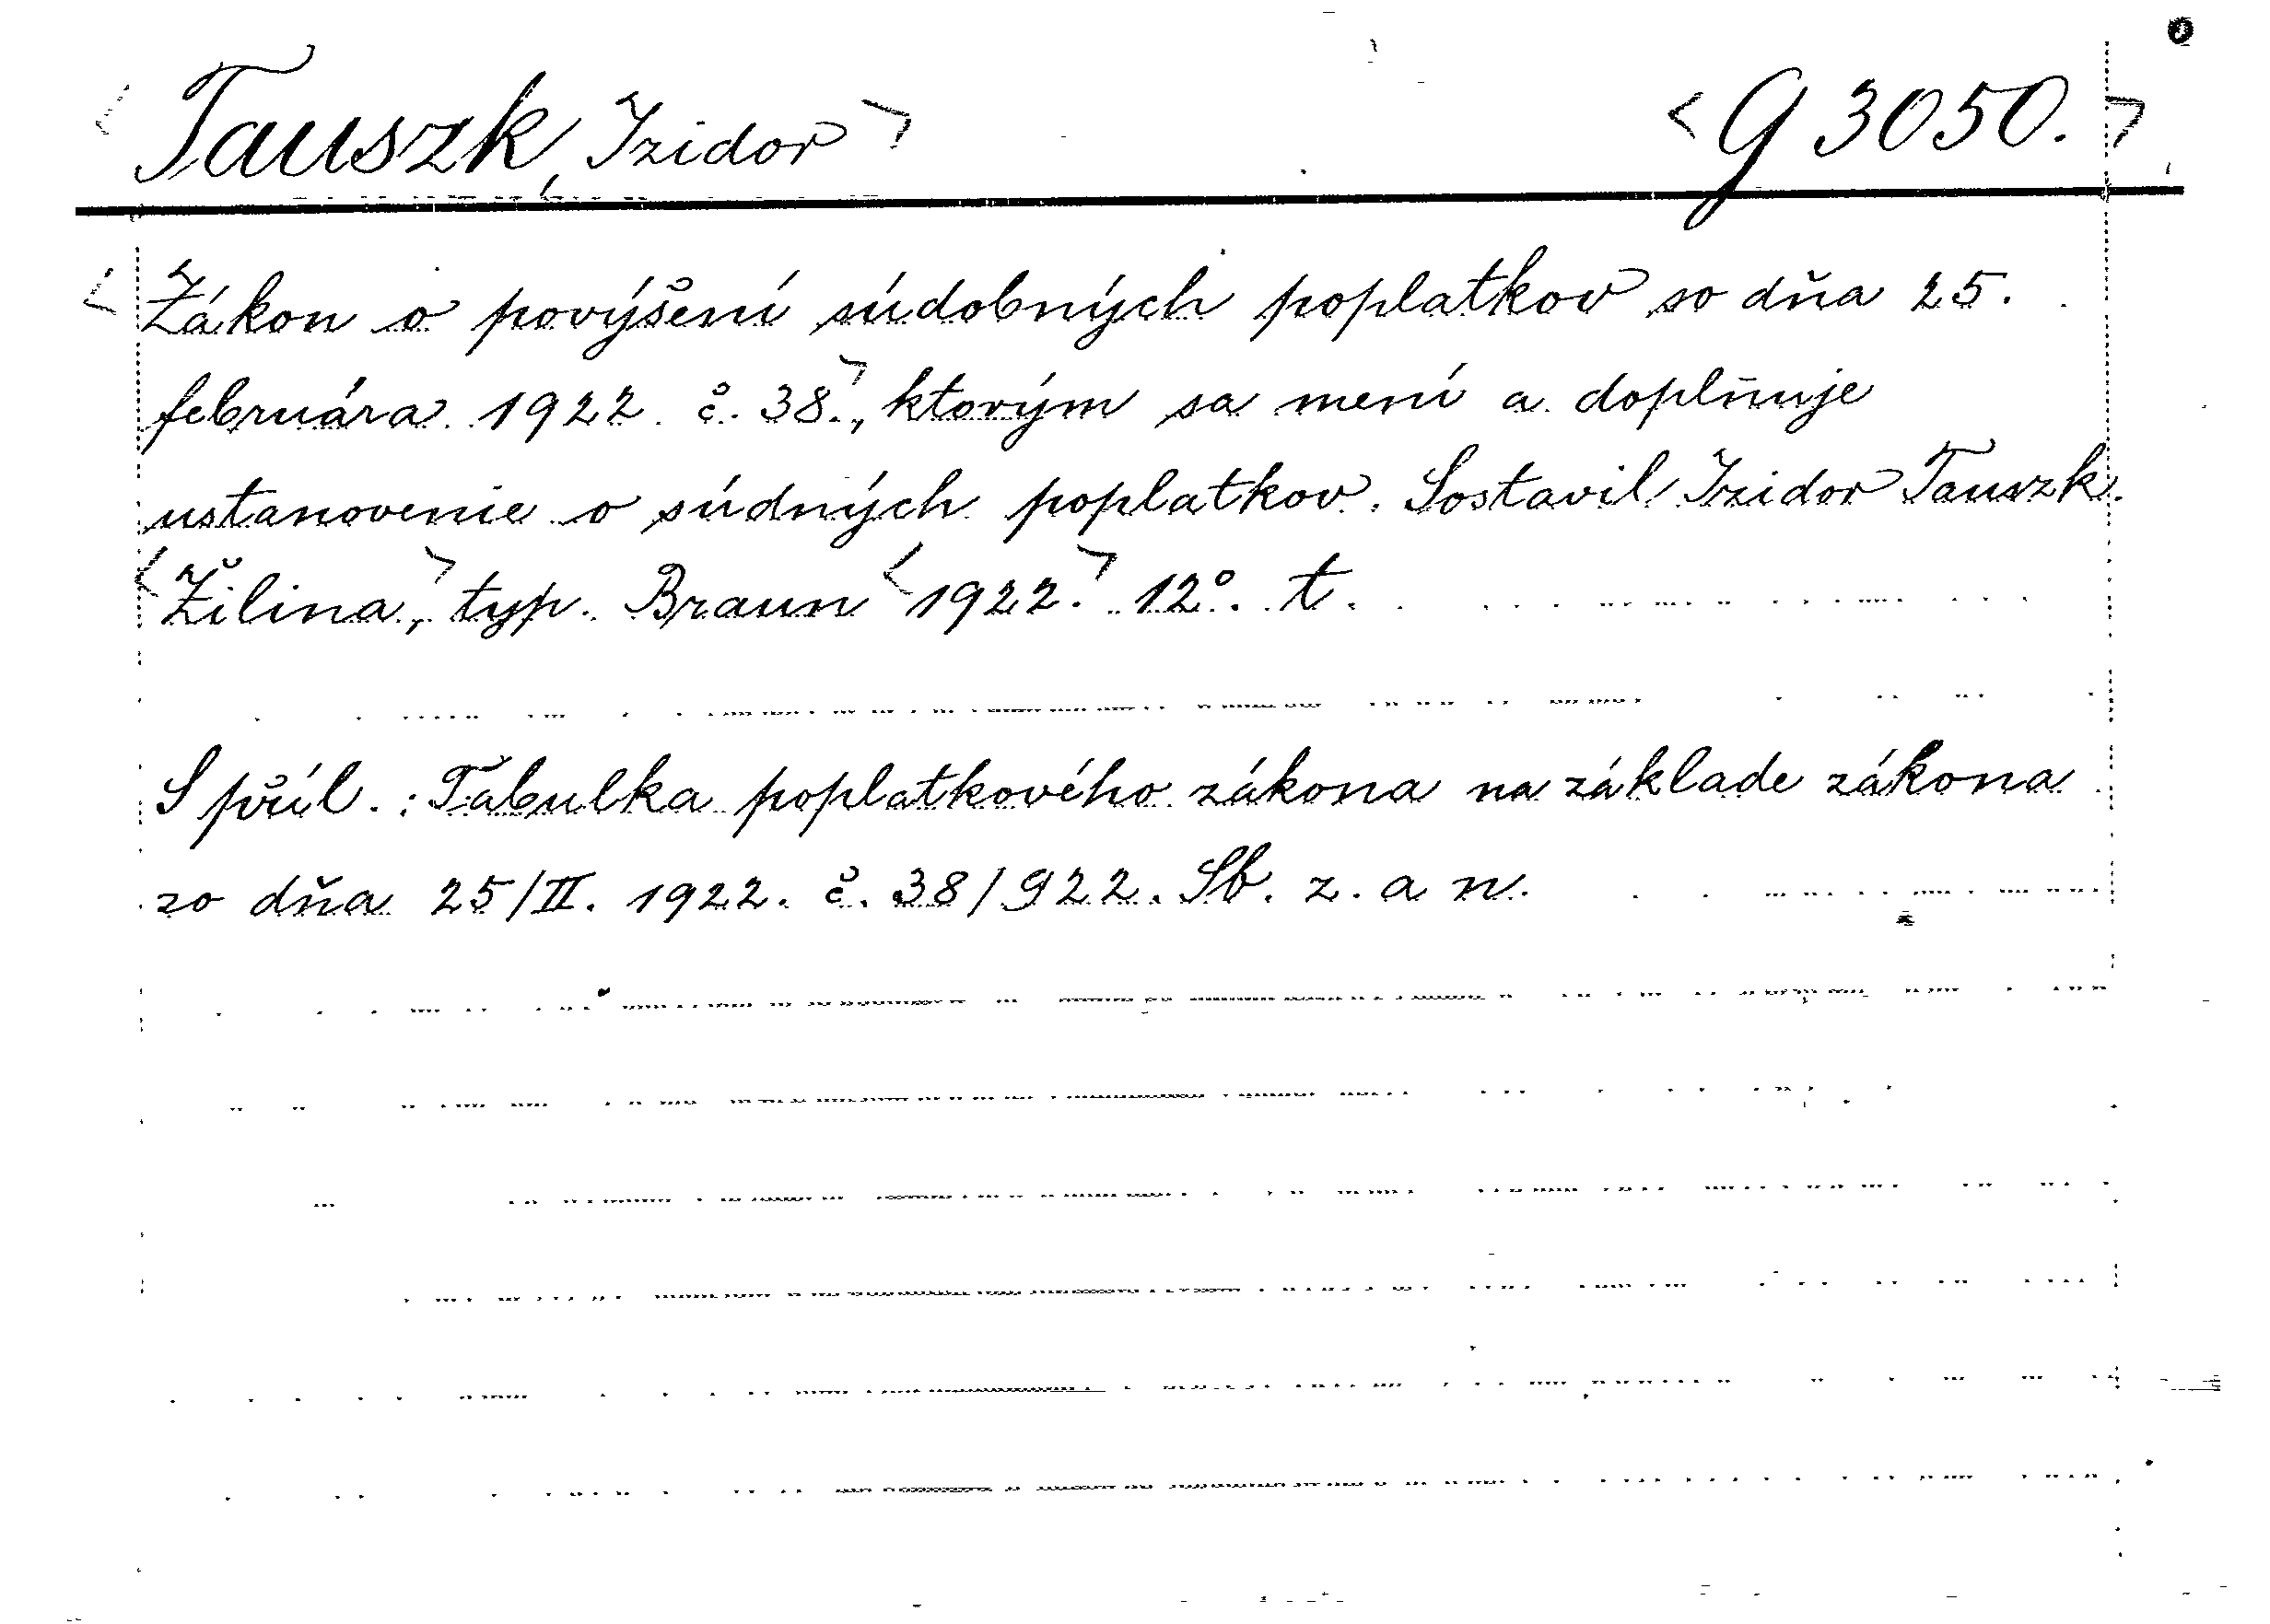 <Tauszk, Izidor> <G 3050.>
<Zákon o povýšení súdobných poplatkov so dňa 25.
februára 1922 č. 38.>, ktorým sa mení a doplňuje
ustanovenie o súdných poplatkov. Sostavil Izidor Tauszk.
<Žilina,> typ. Braun <1922.> 12°. t.
S příl.: Tabulka poplatkového zákona na základe zákona
zo dňa 25/II. 1922. č. 38/922. Sb. z. a n.